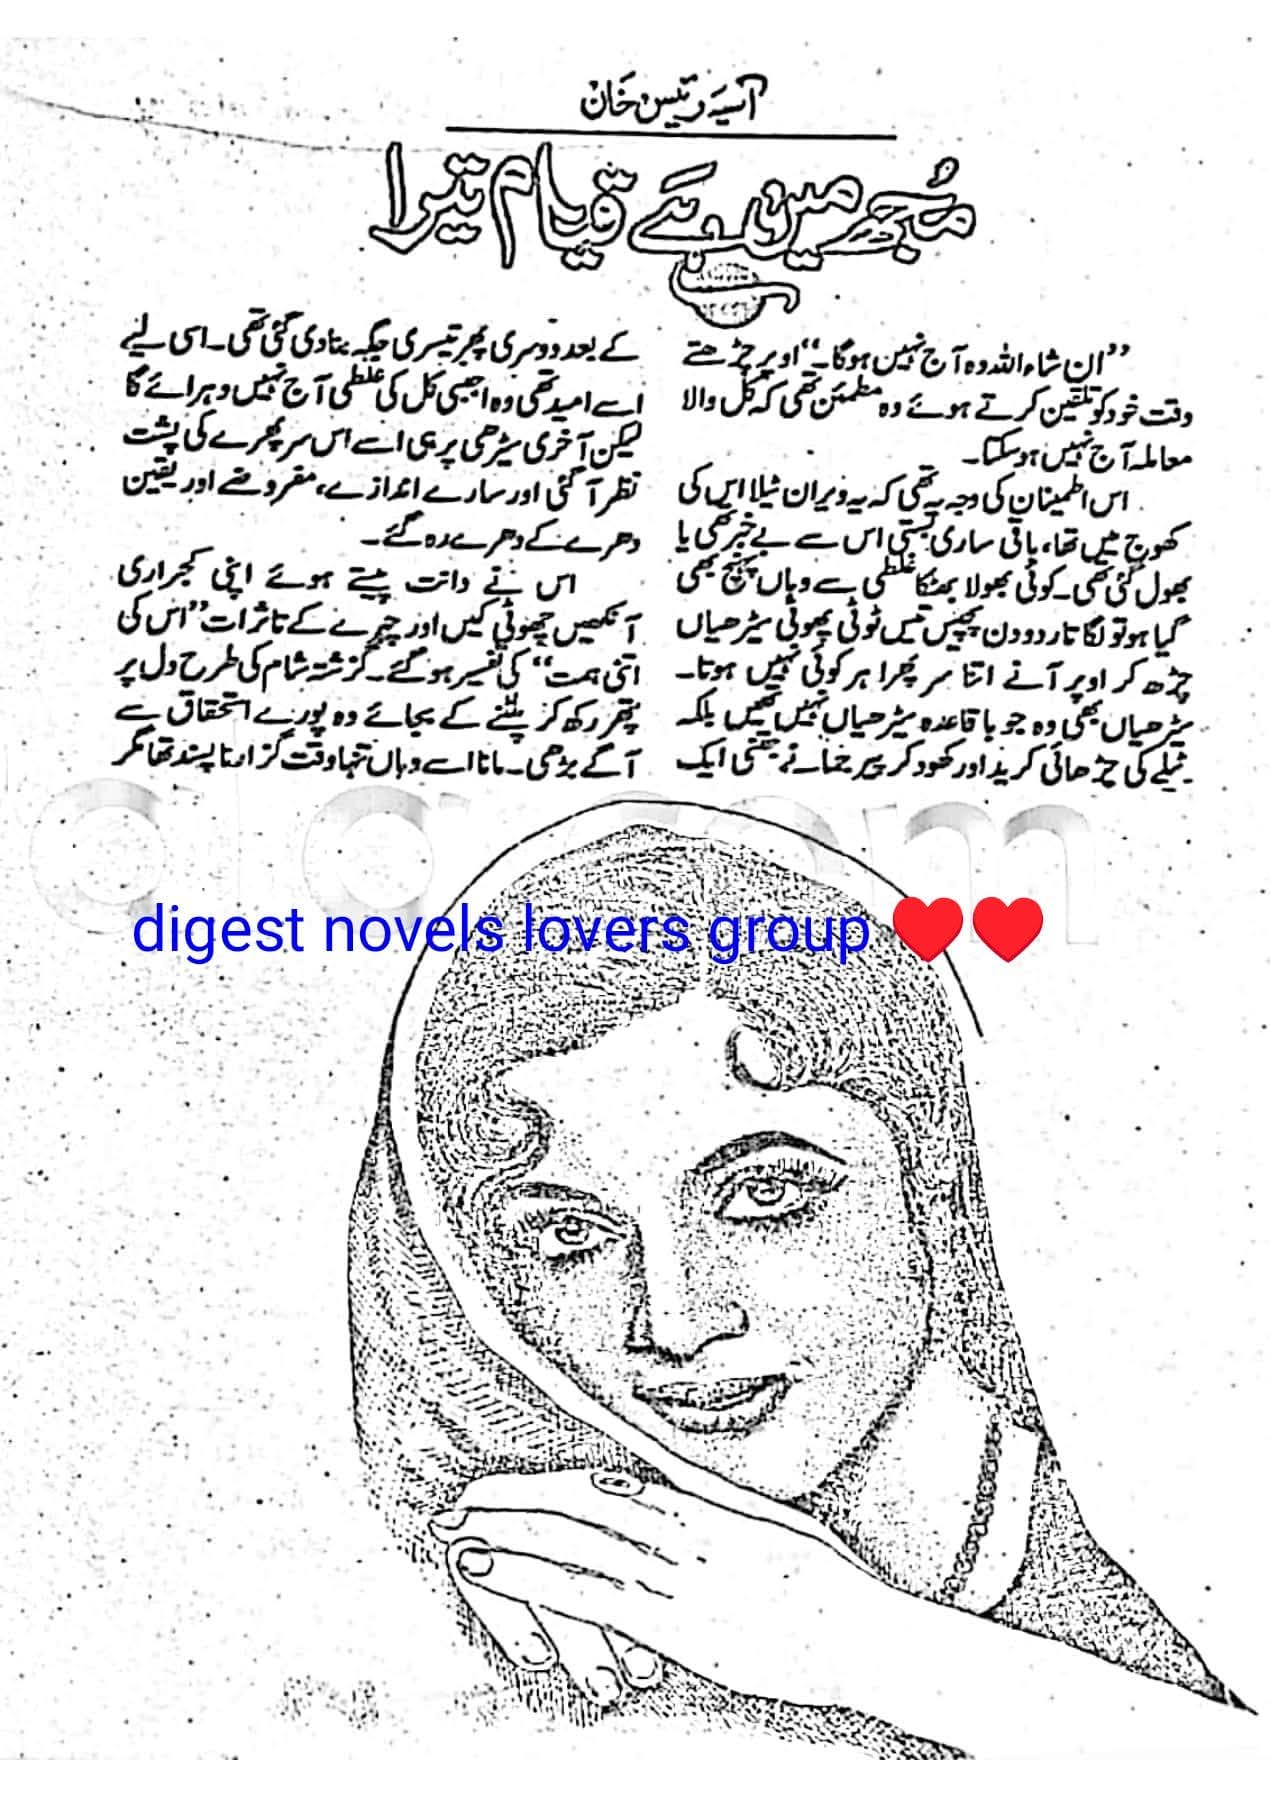 آسیہ رئیس خان
مُجھ میں ہے قیام تیرا
”ان شاء اللہ وہ آج نہیں ہوگا۔“ اوپر چڑھتے
وقت خود کو تلقین کرتے ہوئے وہ مطمئن تھی کہ کل والا
معاملہ آج نہیں ہوسکتا۔
اس اطمینان کی وجہ یہ تھی کہ یہ ویران ٹیلا اس کی
کھوج میں تھا، باقی ساری بستی اس سے بے خبر تھی یا
بھول گئی تھی۔ کوئی بھولا بھٹکا غلطی سے وہاں پہنچ بھی
گیا ہو تو لگاتار دو دن پچیس تیس ٹوٹی پھوٹی سیڑھیاں
چڑھ کر اوپر آنے اتنا سر پھرا ہر کوئی نہیں ہوتا۔
سیڑھیاں بھی وہ جو باقاعدہ سیڑھیاں نہیں تھیں بلکہ
ٹیلے کی چڑھائی کرید اور کھود کر پیر جمانے جتنی ایک
کے بعد دوسری پھر تیسری جگہ بنا دی گئی تھی۔ اسی لیے
اسے امید تھی وہ اجنبی کل کی غلطی آج نہیں دہرائے گا
لیکن آخری سیڑھی پر ہی اسے اس سر پھرے کی پشت
نظر آ گئی اور سارے اندازے، مفروضے اور یقین
دھرے کے دھرے رہ گئے۔
اس نے دانت پیستے ہوئے اپنی کجراری
آنکھیں چھوٹی کیں اور چہرے کے تاثرات ”اس کی
اتنی ہمت“ کی تفسیر ہو گئے۔ گزشتہ شام کی طرح دل پر
پتھر رکھ کر پلٹنے کے بجائے وہ پورے استحقاق سے
آگے بڑھی۔ مانا اسے وہاں تنہا وقت گزارنا پسند تھا مگر
digest novels lovers group ♥♥